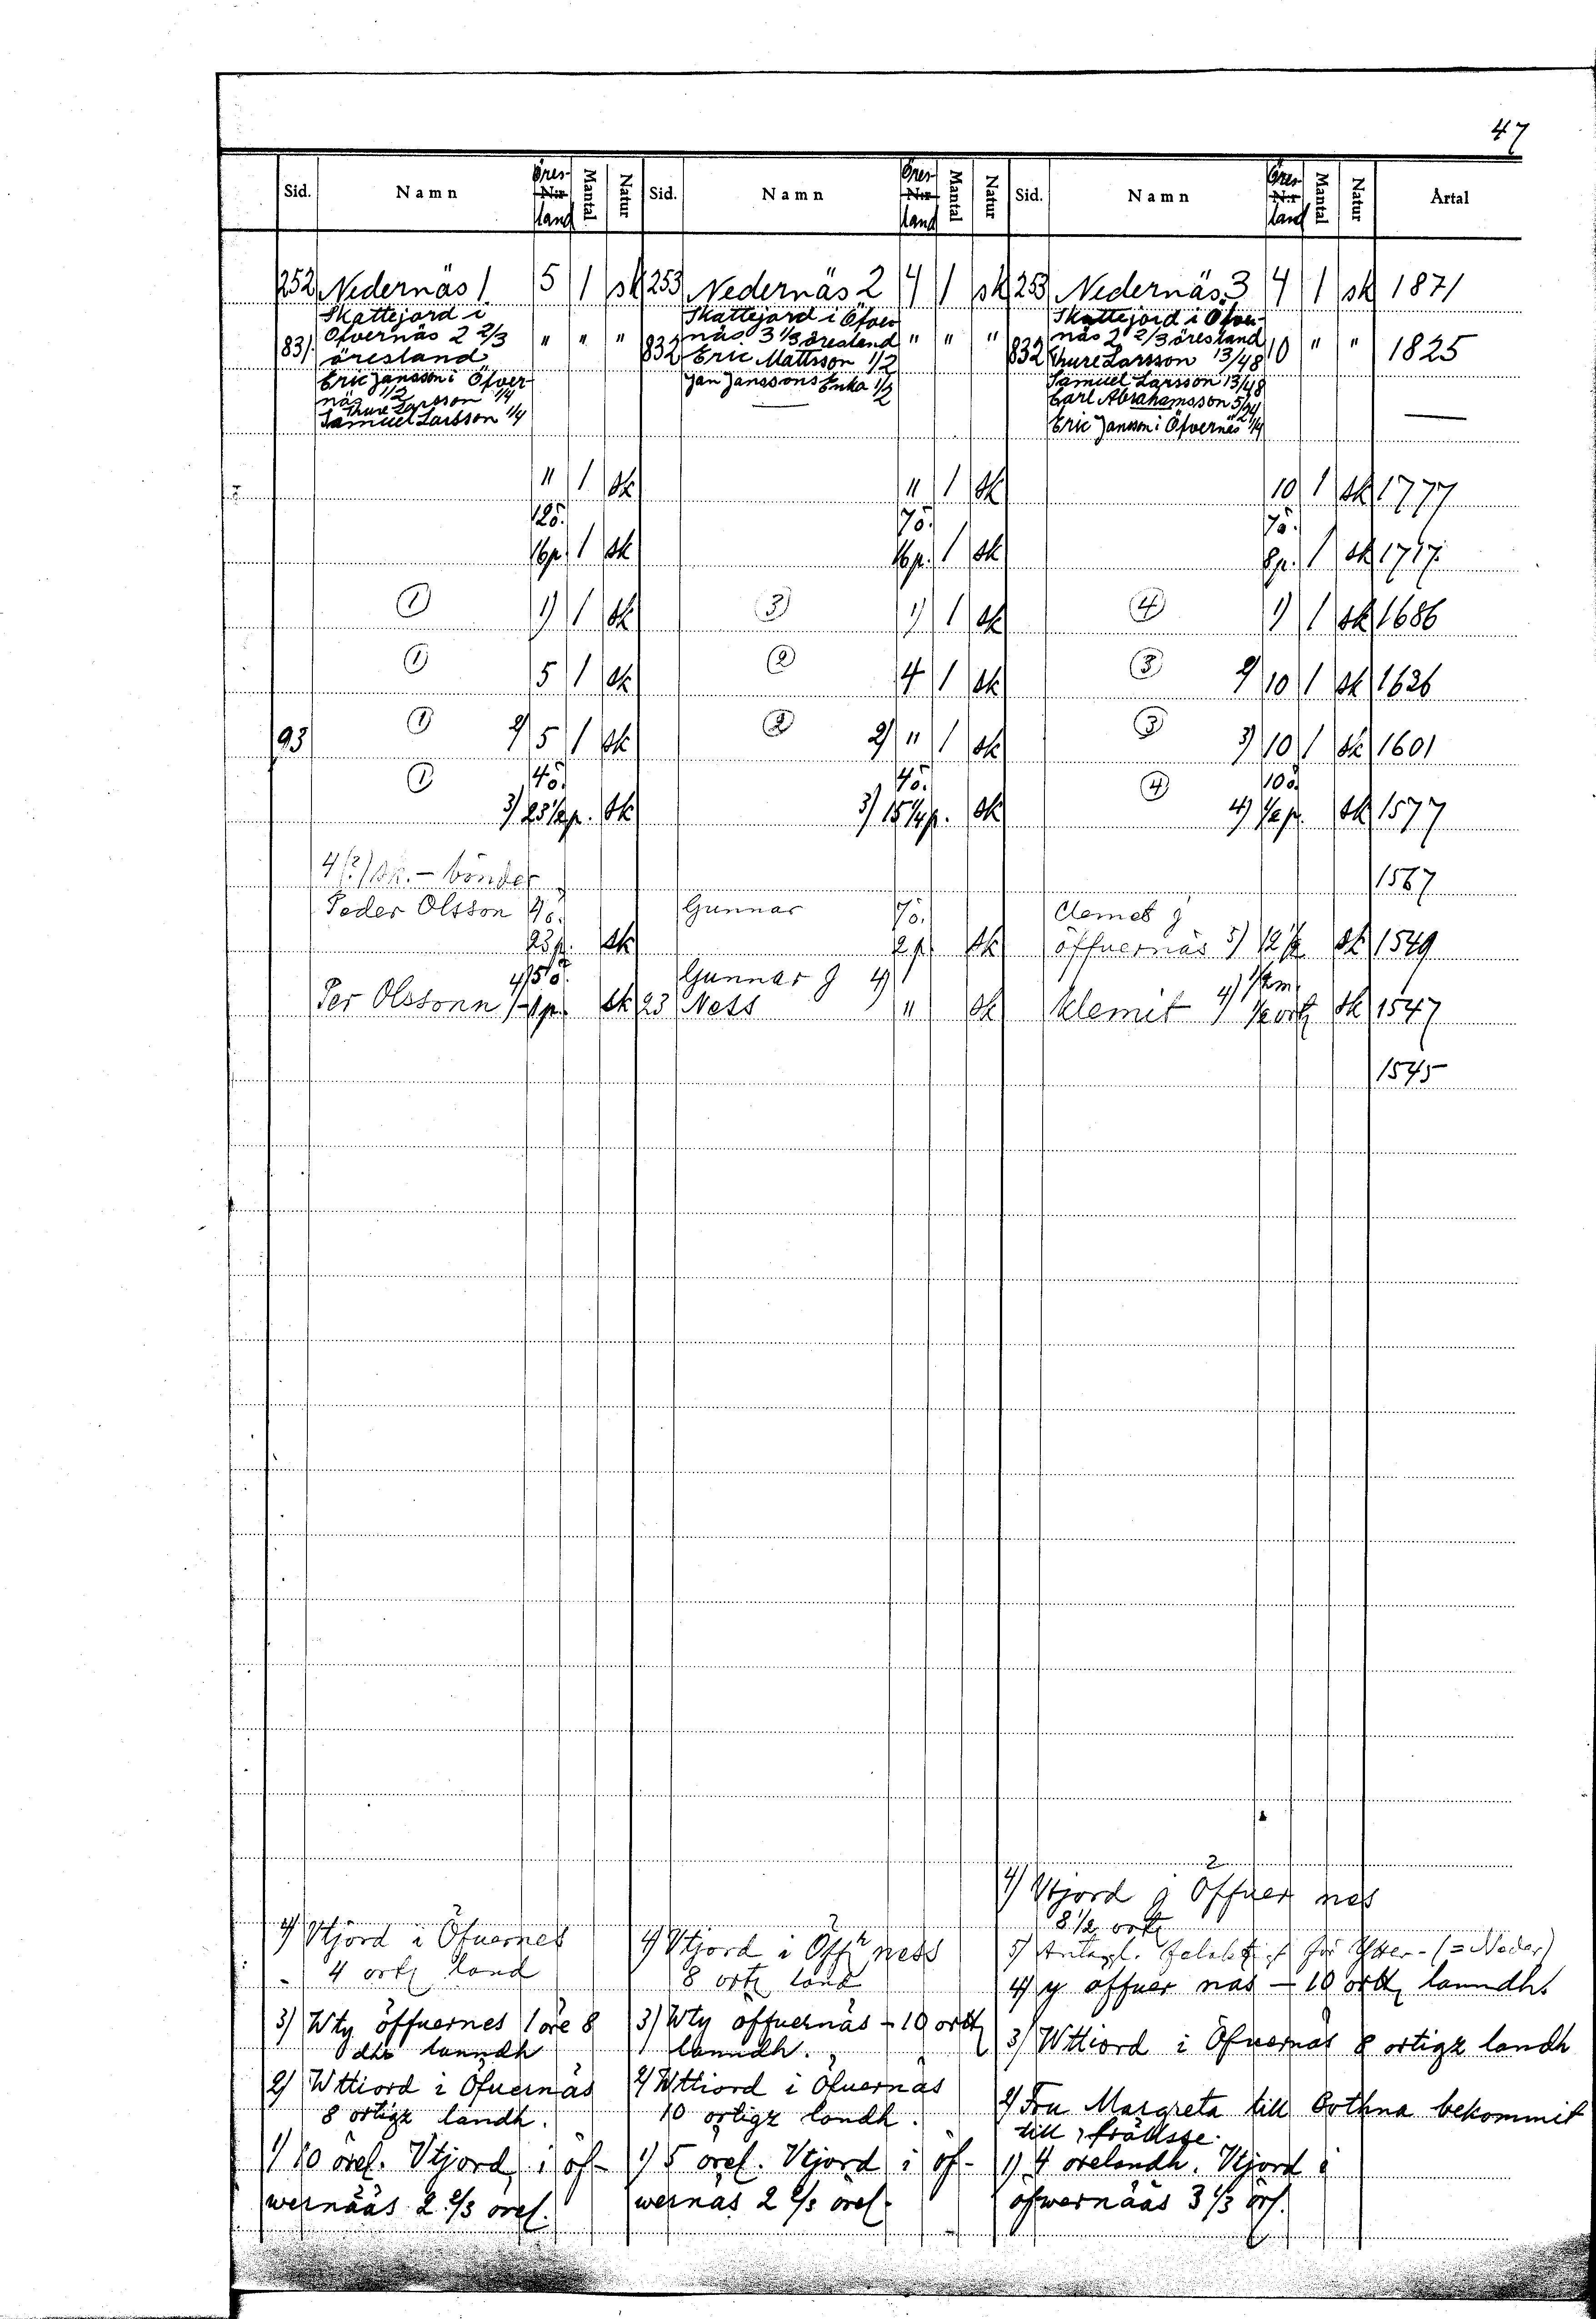 47
Sid. Namn Öres- Nr land Mantal Natur Sid. Namn Öres- Nr land Mantal Natur Sid. Namn Öres- Nr land Mantal Natur Årtal
252 Nedernäs 1. 5 1 sk 253 Nedernäs 2 4 1 sk 253 Nedernäs 3 4 1 sk 1871
Skattejord i Skattejord i Öfver Skattejord i Öfver-
831. Öfvernäs 2 2/3 " " " 832 näs 3 1/3 öresland " " " 832 näs 2 2/3 öresland 10 " " 1825
öresland Eric Mattsson 1/2 Thure Larsson 13/48
Eric Jansson i Öfver- Jan Janssons Enka 1/2 Samuel Larsson 13/48
näs 1/2 — Carl Abrahamsson 5/24
Thure Larsson 1/4
Samuel Larsson 1/4 Eric Jansson i Öfvernäs 1/4 —
" 1 sk " 1 sk 10 1 sk 1777
12ö. 7ö. 7ö.
16p. 1 sk 16p. 1 sk 8p. 1 sk 1717.
1 1) 1 sk 3 1) 1 sk 4 1) 1 sk 1686
1 5 1 sk 2 4 1 sk 3 2) 10 1 sk 1626
93 1 2) 5 1 sk 2 2) " 1 sk 3 3) 10 1 sk 1601
1 4ö. 4ö. 4 10ö.
3) 23 1/2 p. sk 3) 15 1/4 p. sk 4) 1/2 p. sk 1577
4 (?) sk. - bönder 1567
Peder Olsson 4ö. Gunnar 7ö. Clemet j
23p. sk 2p. sk öffuernäs 5) 12 1/2 sk 1549
4) 5ö. Gunnar j 4) 4) 1/2 m.
Per Olssonn -1p. sk 23 Ness " sk Klemit 1/2 ort sk 1547
1545
4) Vtjord j Öffuer nes
8 1/2 ort
4) Vtjord i Öfuernes
4 ort land
4) Vtjord i Öff ness
8 ort land
5) Antagl. för Ytter- (=Neder)
4) y offuer nas - 10 ort lanndh.
3) Wty öffuernes 1 öre 8
lanndh
3) Wty öffuernäs - 10 ort
lanndh.
3) Wttiord i Öfuernäs 8 ortigz landh
2) Wttiord i Öfuernäs
8 ortigz landh.
2) Wttiord i Öfuernäs
10 ortigz landh.
2) Fru Margreta till Bothna bekommit
till frällsse.
1) 10 örel. Vtjord i öf-
wernääs 2 2/3 örel.
1) 5 örel. Vtjord i öf-
wernäs 2 2/3 örel.
1) 4 örelandh. Vtjord i
öfwernääs 3 1/3 örl.